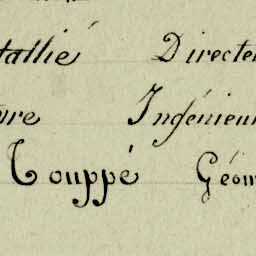 tallié Directe
ure Ingénieu
Touppé Géom